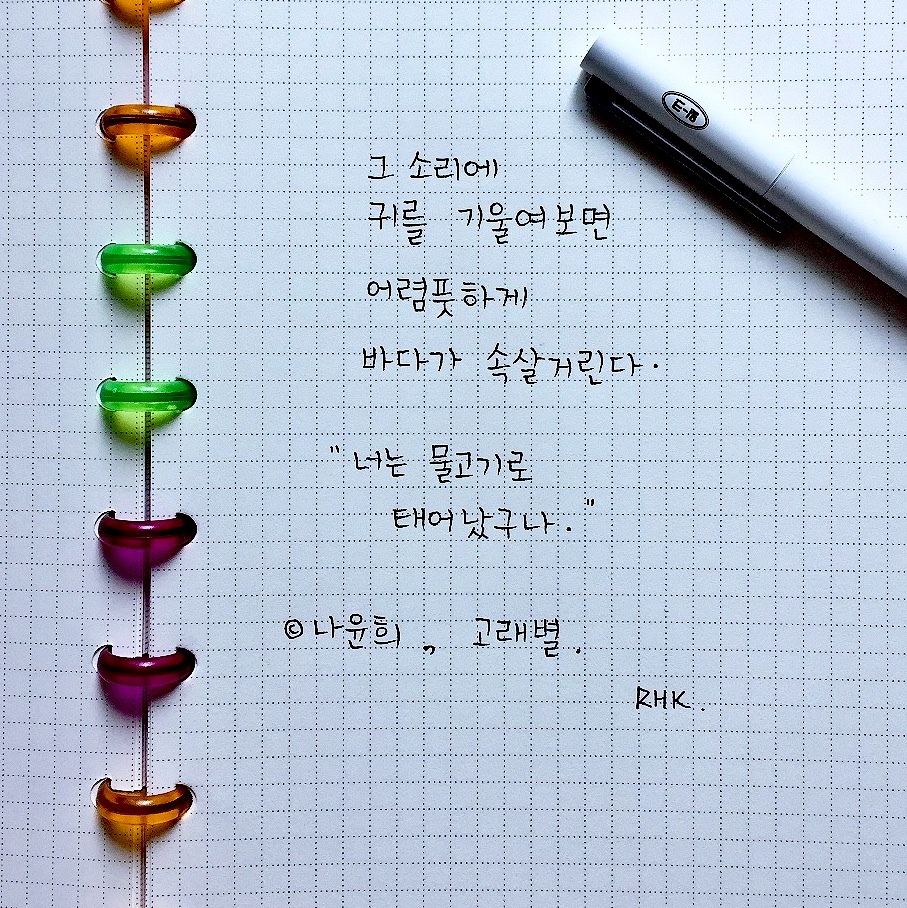 그 소리에
귀를 기울여보면
어렴풋하게
바다가 속살거린다.
"너는 물고기로
태어났구나."
© 나윤희, 고래별.
RHK.